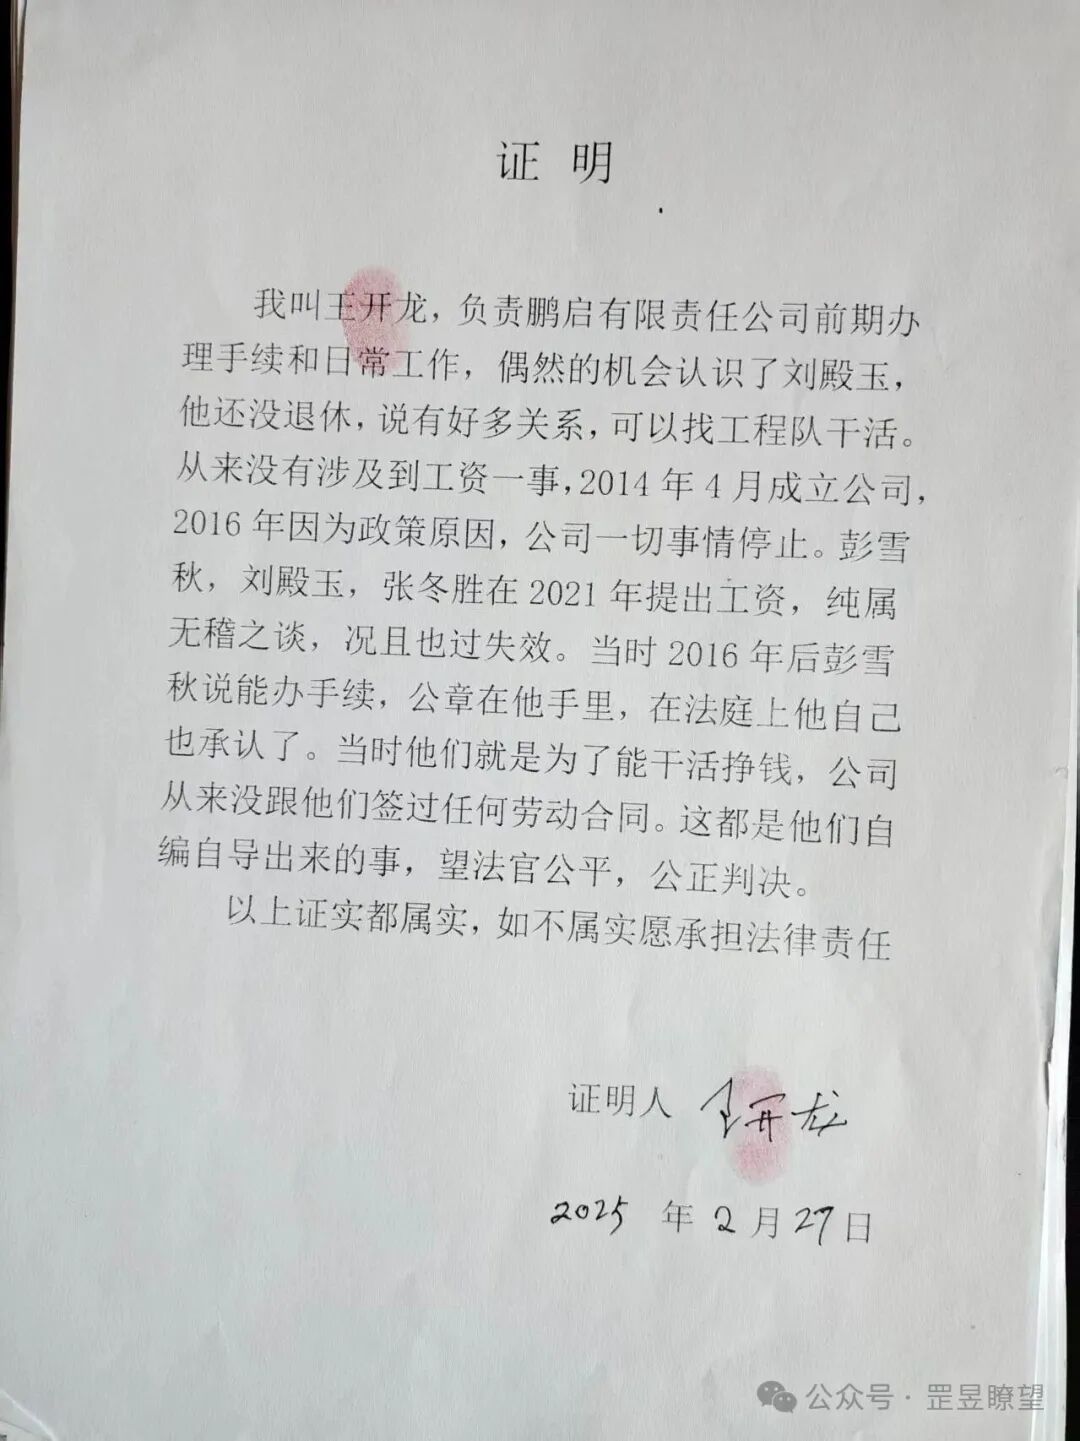 证 明
我叫王开龙，负责鹏启有限责任公司前期办
理手续和日常工作，偶然的机会认识了刘殿玉，
他还没退休，说有好多关系，可以找工程队干活。
从来没有涉及到工资一事，2014年4月成立公司，
2016年因为政策原因，公司一切事情停止。彭雪
秋，刘殿玉，张冬胜在2021年提出工资，纯属
无稽之谈，况且也过失效。当时2016年后彭雪
秋说能办手续，公章在他手里，在法庭上他自己
也承认了。当时他们就是为了能干活挣钱，公司
从来没跟他们签过任何劳动合同。这都是他们自
编自导出来的事，望法官公平，公正判决。
以上证实都属实，如不属实愿承担法律责任
证明人 王开龙
2025 年 2 月 27 日
公众号 · 罡昱瞭望